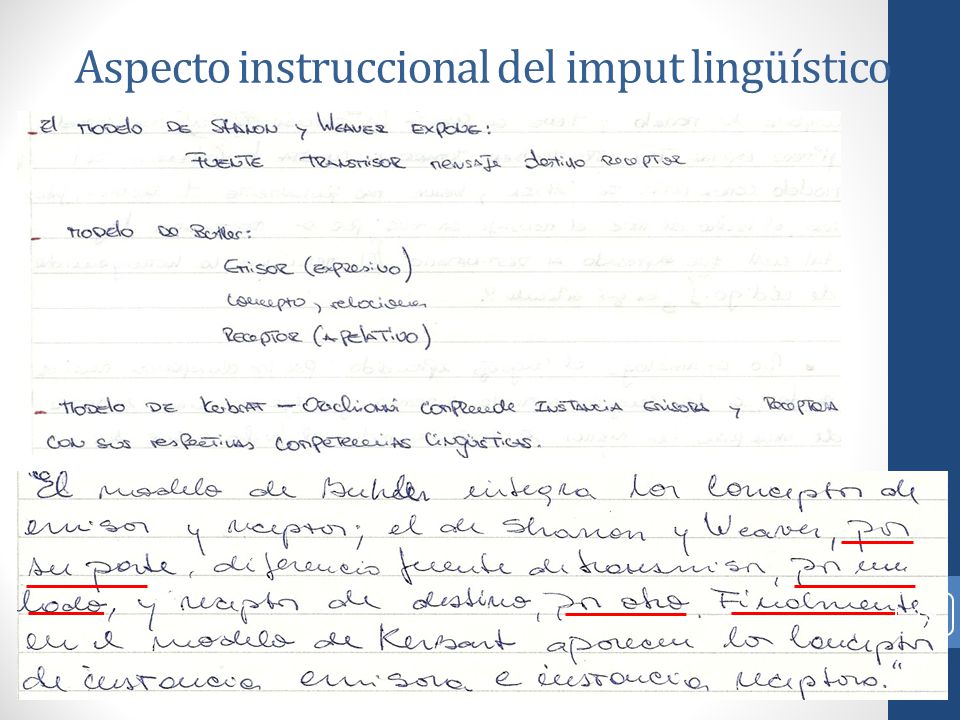 Aspecto instruccional del imput lingüístico
- El MODELO DE SHANON y WEAVER EXPONE:
FUENTE TRANSMISOR MENSAJE destino RECEPTOR
- MODELO DE Butler:
EMISOR (EXPRESIVO)
Concepto, relaciones
RECEPTOR (APELATIVO)
- MODELO DE Kerbrat - Orechionni comprende INSTANCIA EMISORA y RECEPTORA
CON SUS RESPECTIVAS COMPETENCIAS LINGÜÍSTICAS.
"El modelo de Buhler integra los conceptos de
emisor y receptor; el de Shanon y Weaver, por
su parte, diferencia fuente de transmisor, por un
lado, y receptor de destino, por otro. Finalmente,
en el modelo de Kerbrart aparecen los conceptos
de instancia emisora e instancia receptora."